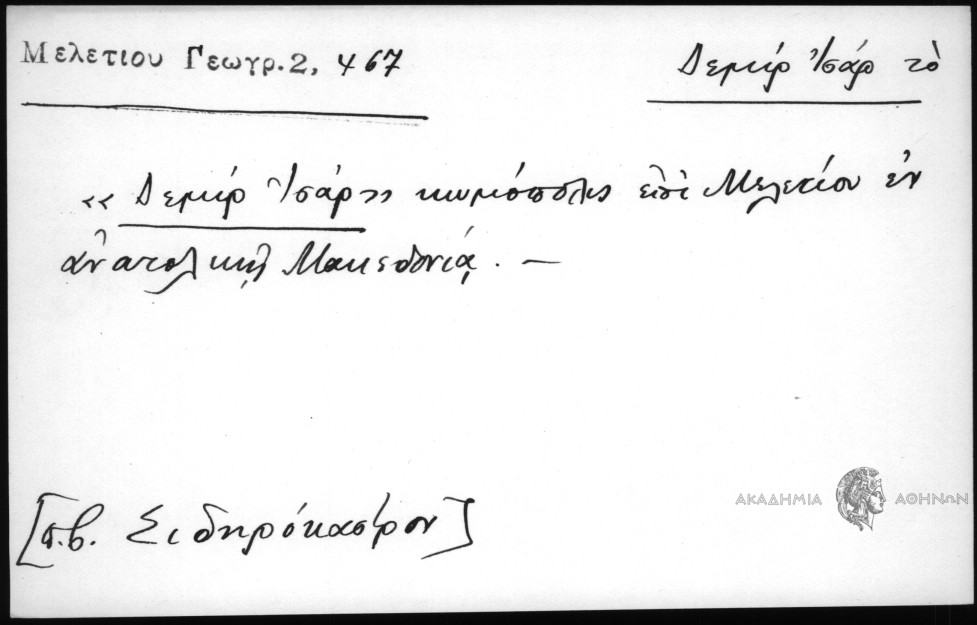 Μελετιου Γεωγρ.2, 467
Δεμίρ Ἱσάρ τὸ
«Δεμίρ Ἱσάρ» κωμόπολις ἐπὶ Μελετίου ἐν
ἀνατολικῇ Μακεδονίᾳ. —
[π.β. Σιδηρόκαστρον]
ΑΚΑΔΗΜΙΑ ΑΘΗΝΩΝ